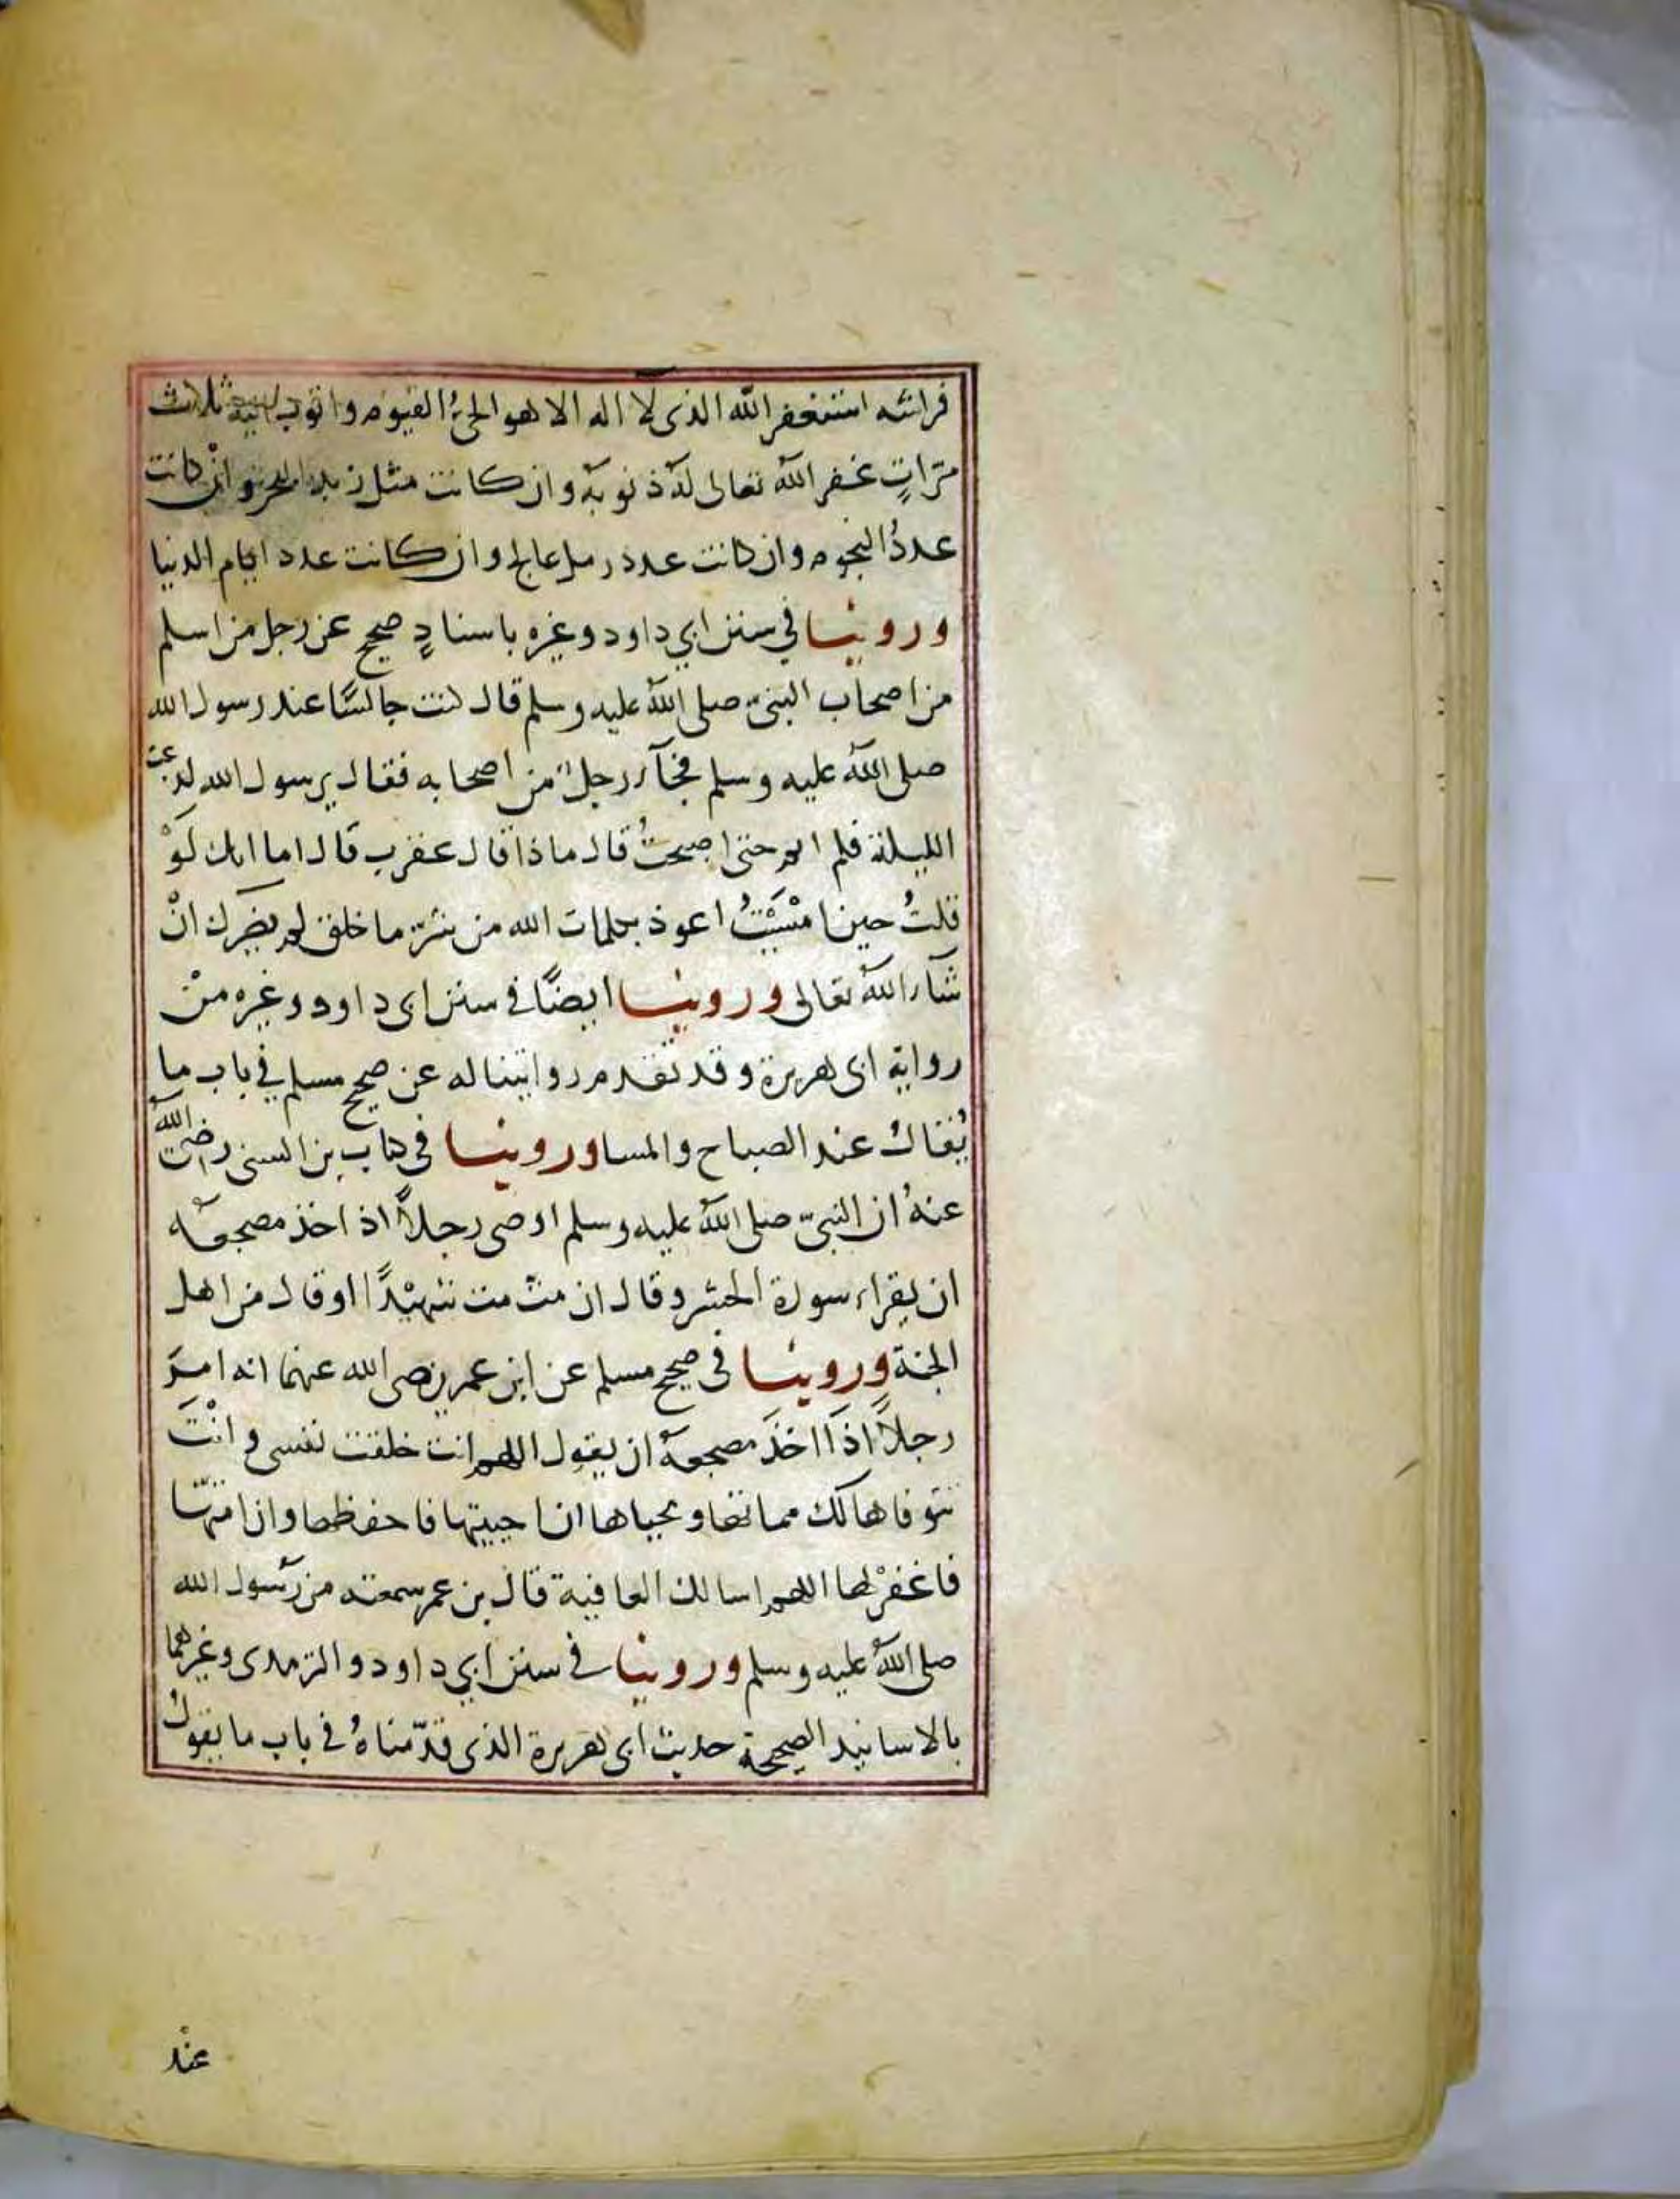 فراشه استغفر الله الذى لا اله الا هو الحىُّ القيوم واتوب اليه ثلاث
مرّاتٍ غفر اللهُ تعالى لهُ ذنوبهُ وان كانت مثل زبد البحر وانْ كانت
عددُ النجوم وان كانت عدد رمل عالج وان كانت عدد ايام الدنيا
وروينا في سنن ابي داود وغيره باسنادٍ صحيح عن رجل من اسلم
من اصحاب النبىّ صلى اللهُ عليه وسلم قال كنت جالسًا عند رسول الله
صلى اللهُ عليه وسلم فجآء رجلٌ من اصحابه فقال يرسول الله لدغت
الليلة فلم انم حتى اصبحتُ قال ماذا قال عقرب قال اما انك لَوْ
قلتُ حين امْسَيْتُ اعوذ بكلمات الله من شرّ ما خلق لم يضرك انْ
شآء اللهُ تعالى وروينا ايضًا فى سنن ابى داود وغيره منْ
رواية ابى هريرة وقد تقدم روايتنا له عن صحيح مسلم في باب ما
يُقالُ عند الصباح والمسا وروينا فى كتاب بن السنى رضى اللهُ
عنهُ ان النبىّ صلى اللهُ عليه وسلم اوصى رجلاً اذ اخذ مضجعهُ
ان يقراء سورة الحشر وقال ان متّ مت شهيْدًا او قال من اهل
الجنة وروينا فى صحيح مسلم عن ابن عمر رضى الله عنهما انه امرَ
رجلاً اذَا اخذَ مضجعهُ ان يقول اللهم انت خلقت نفسى وانْتَ
تتوفاها لك مماتها ومحياها ان احييتها فاحفظها وان امتّها
فاغفرْ لها اللهم اسالك العافية قال بن عمر سمعته من رسُول الله
صلى اللهُ عليه وسلم وروينا فى سنن ابي داود والترمدى وغيرهما
بالاسانيد الصحيحة حديث ابى هريرة الذى قدّمناهُ فى باب ما يقولُ
عنْد